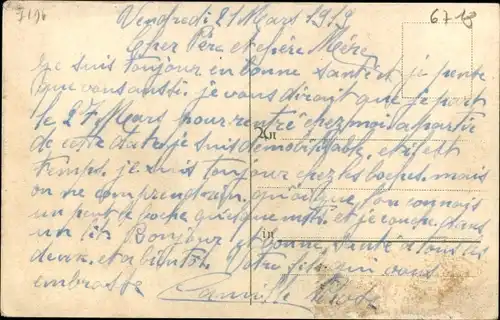 7196
6710
Vendredi 21 Mars 1919
Cher Père et chère Mère
Je suis toujour en bonne santé et je pense
que vous aussi. je vous dirait que je part
le 27 Mars pour rentré chez moi a partir
An
de cette date je suis demobilisable. et il est
temps. je suis toujour chez les boches. mais
on ne comprend rien. quoique l'on connais
un peut de boche quelque mots. et je couche dans
in
un lit Bonjour et bonne santé a tous les
deux. et a bientôt. Votre fils qui vous
embrasse Camille